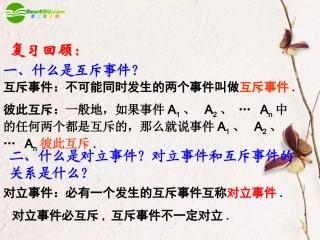 DearEDU.com
复习回顾：
一、什么是互斥事件？
互斥事件：不可能同时发生的两个事件叫做互斥事件 .
彼此互斥：一般地，如果事件 A1 、 A2 、 … An 中
的任何两个都是互斥的，那么就说事件 A1 、 A2 、
… An 彼此互斥 .
二、什么是对立事件？对立事件和互斥事件的
关系是什么？
对立事件：必有一个发生的互斥事件互称对立事件 .
对立事件必互斥 , 互斥事件不一定对立 .